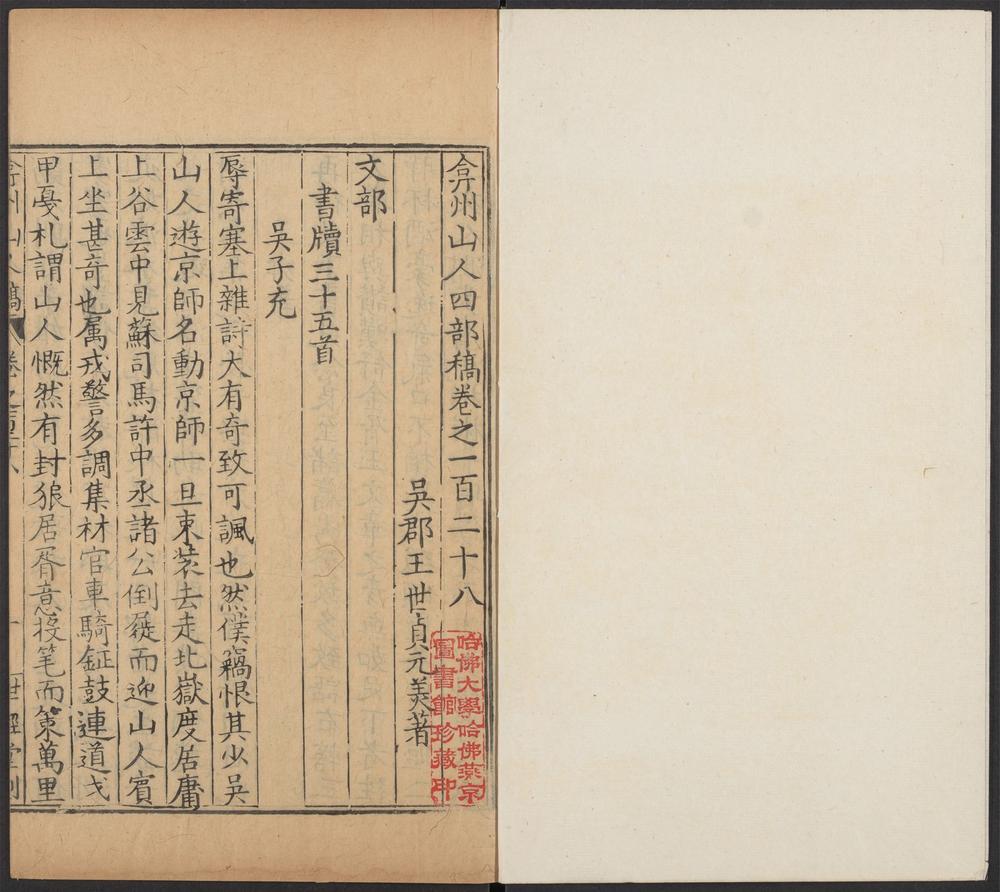 弇州山人四部稿卷之一百二十八
吳郡王世貞元美著
文部
書牘三十五首
吳子充
辱寄塞上雜詩大有奇致可諷也然僕竊恨其少吳
山人遊京師名動京師一旦束裝去走北嶽度居庸
上谷雲中見蘇司馬許中丞諸公倒屣而迎山人賓
上坐甚奇也属戎警多調集材官車騎鉦鼓連道戈
甲戛札謂山人慨然有封狼居胥意投笔而策萬里
弇州山人稿 卷之一百二十八 一 世經堂刻
哈佛大學哈佛燕京
圖書館珍藏印